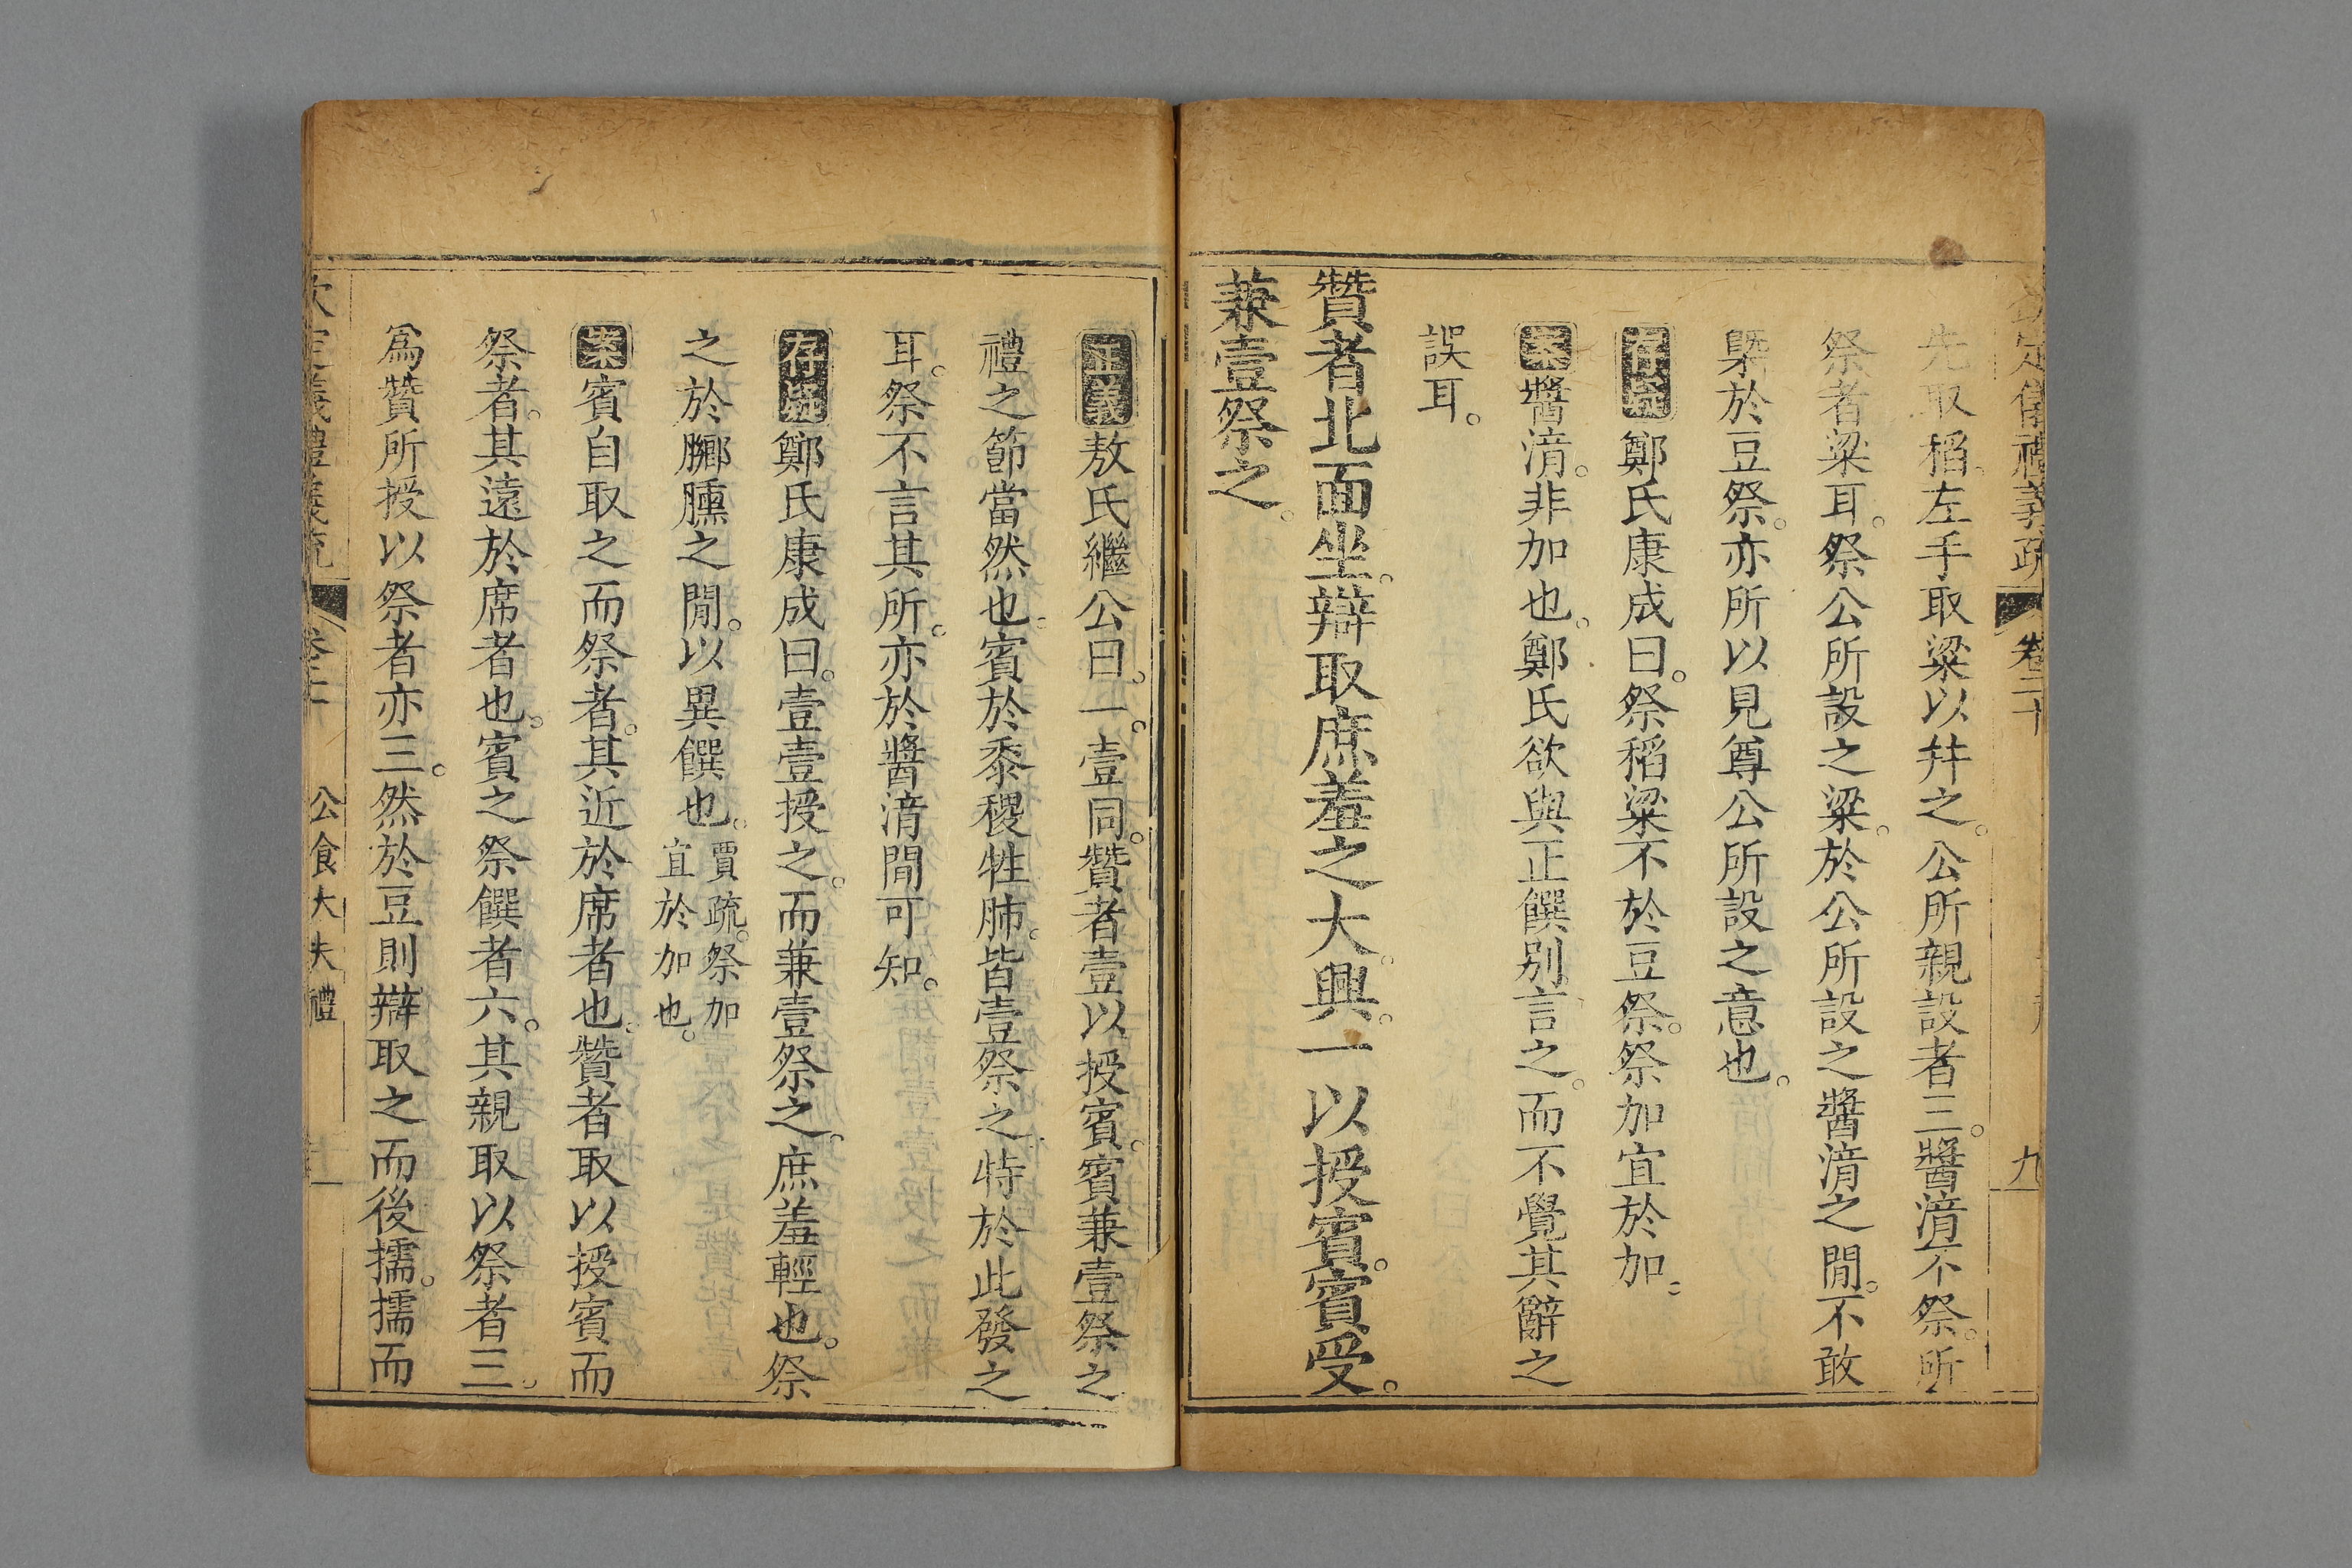 欽定儀禮義疏 卷二十 九
先取稻。左手取粱以幷之。公所親設者三。醬湇不祭。所
祭者粱耳。祭公所設之粱。於公所設之醬湇之閒。不敢
槩於豆祭。亦所以見尊公所設之意也。
存疑鄭氏康成曰。祭稻粱不於豆祭。祭加宜於加。
案醬湇。非加也。鄭氏欲與正饌别言之。而不覺其辭之
誤耳。
贊者北面坐。辯取庶羞之大。興。一以授賓。賓受。
兼壹祭之。
正義敖氏繼公曰。一。壹同。贊者壹以授賓。賓兼壹祭之
禮之節當然也。賓於黍稷牲肺。皆壹祭之。特於此發之
耳。祭不言其所。亦於醬湇間可知。
存疑鄭氏康成曰。壹壹授之。而兼壹祭之。庶羞輕也。祭
之於膷臐之閒。以異饌也。賈疏。祭加宜於加也。
案賓自取之而祭者。其近於席者也。贊者取以授賓而
祭者。其遠於席者也。賓之祭饌者六。其親取以祭者三。
爲贊所授以祭者亦三。然於豆則辯取之而後擩。擩而
公食大夫禮